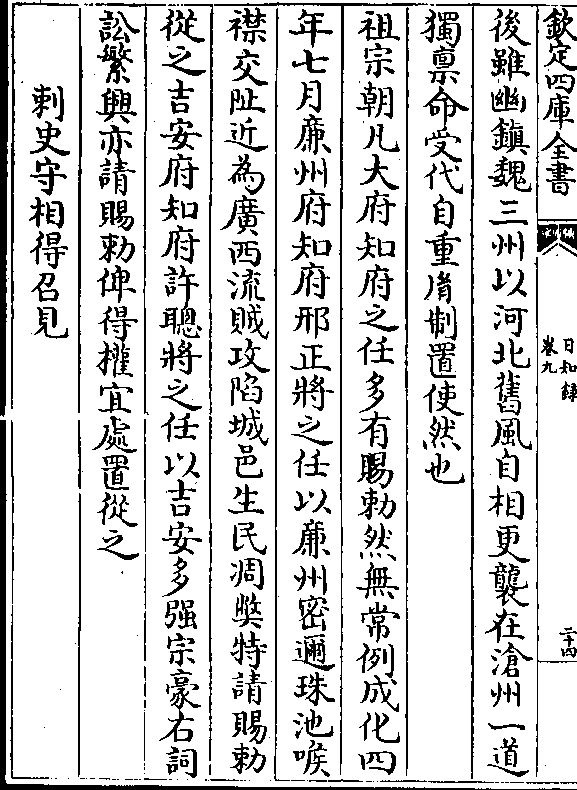 欽定四庫全書
日知録
卷九
二十四
後雖幽鎮魏三州以河北舊風自相更襲在滄州一道
獨禀命受代自重𦙍制置使然也
祖宗朝凡大府知府之任多有賜勅然無常例成化四
年七月㢘州府知府邢正將之任以㢘州密邇珠池喉
襟交阯近為廣西流賊攻陷城邑生民凋獘特請賜勅
從之吉安府知府許聰將之任以吉安多强宗豪右詞
訟繁興亦請賜勅俾得權宜處置從之
刺史守相得召見